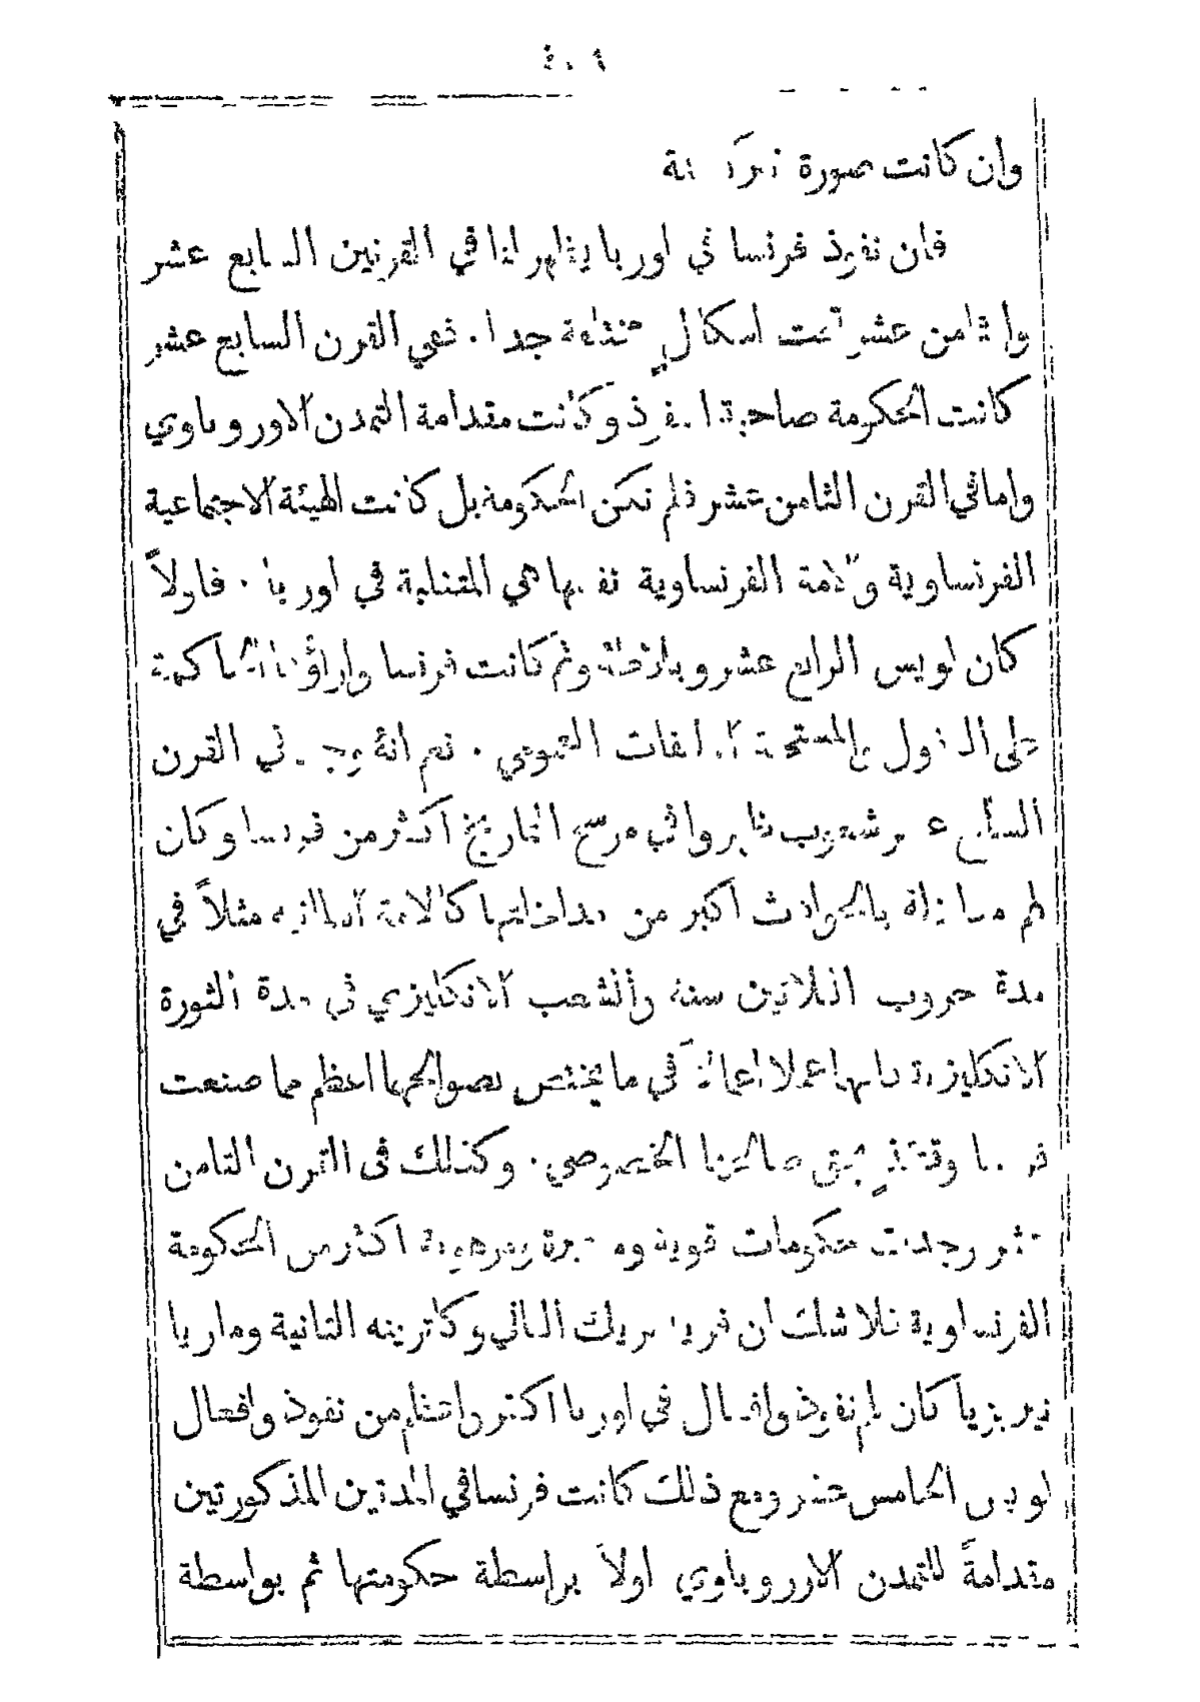 وان كانت صورة
فان نفوذ فرنسا في اوربا يظهر لنا في القرنين السابع عشر
والثامن عشر تحت اشكال جدا . ففي القرن السابع عشر
كانت الحكومة صاحبة النفوذ وكانت مقدامة التمدن الاوروباوي
واما في القرن الثامن عشر فلم تكن الحكومة بل كانت الهيئة الاجتماعية
الفرنساوية والامة الفرنساوية نفسها هي في اوربا . فاولاً
كان لويس الرابع عشر وبلاطه ثم كانت فرنسا واراؤها الحاكمة
على العمومي . نعم انهُ وجد في القرن
السابع عشر شعوب مرسح التاريخ اكثر من فرنسا وكان
لهم مداخلة بالحوادث اكبر من مداخلتها كالامة الالمانيه مثلاً في
مدة حروب الثلاثين سنة والشعب الانكليزي في مدة الثورة
الانكليزية اعمالاً في ما يختص بصوالحها اعظم مما صنعت
فرنسا وقتئذٍ بحق صالحها الخصوصي . وكذلك في القرن الثامن
عشر وجدت حكومات قوية ومرهوبة اكثر من الحكومة
الفرنساوية فلا شك ان فريدريك الثاني وكاترينه الثانية وماريا
تيريزيا كان لهم نفوذ وافعال في اوربا اكثر واعظم من نفوذ وافعال
لويس الخامس عشر ومع ذلك كانت فرنسا في المدتين المذكورتين
مقدامةً للتمدن الاوروباوي اولاً بواسطة حكومتها ثم بواسطة